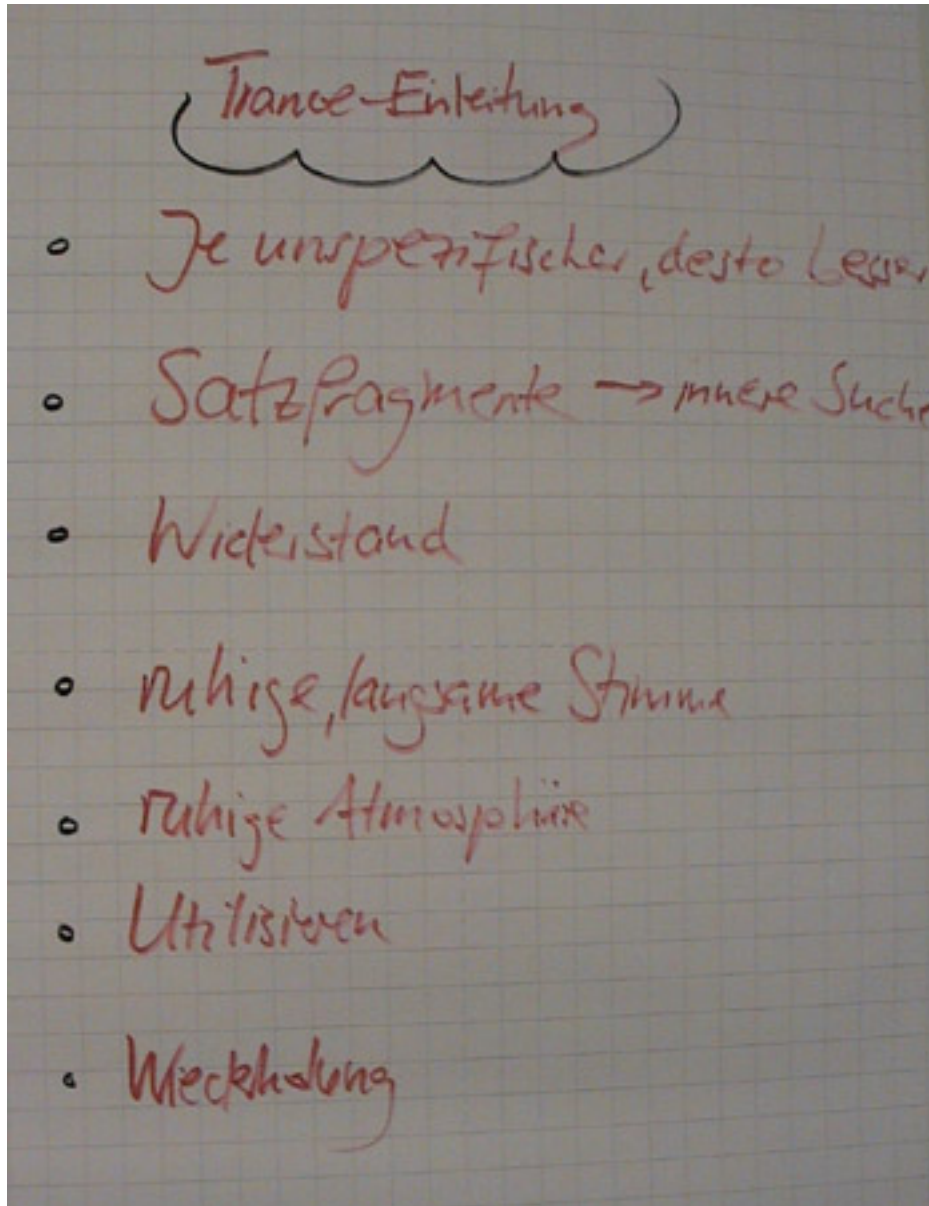 Trance-Einleitung
Je unspezifischer, desto besser
Satzfragmente → innere Suche
Widerstand
ruhige, langsame Stimme
ruhige Atmosphäre
Utilisieren
Wiederholung